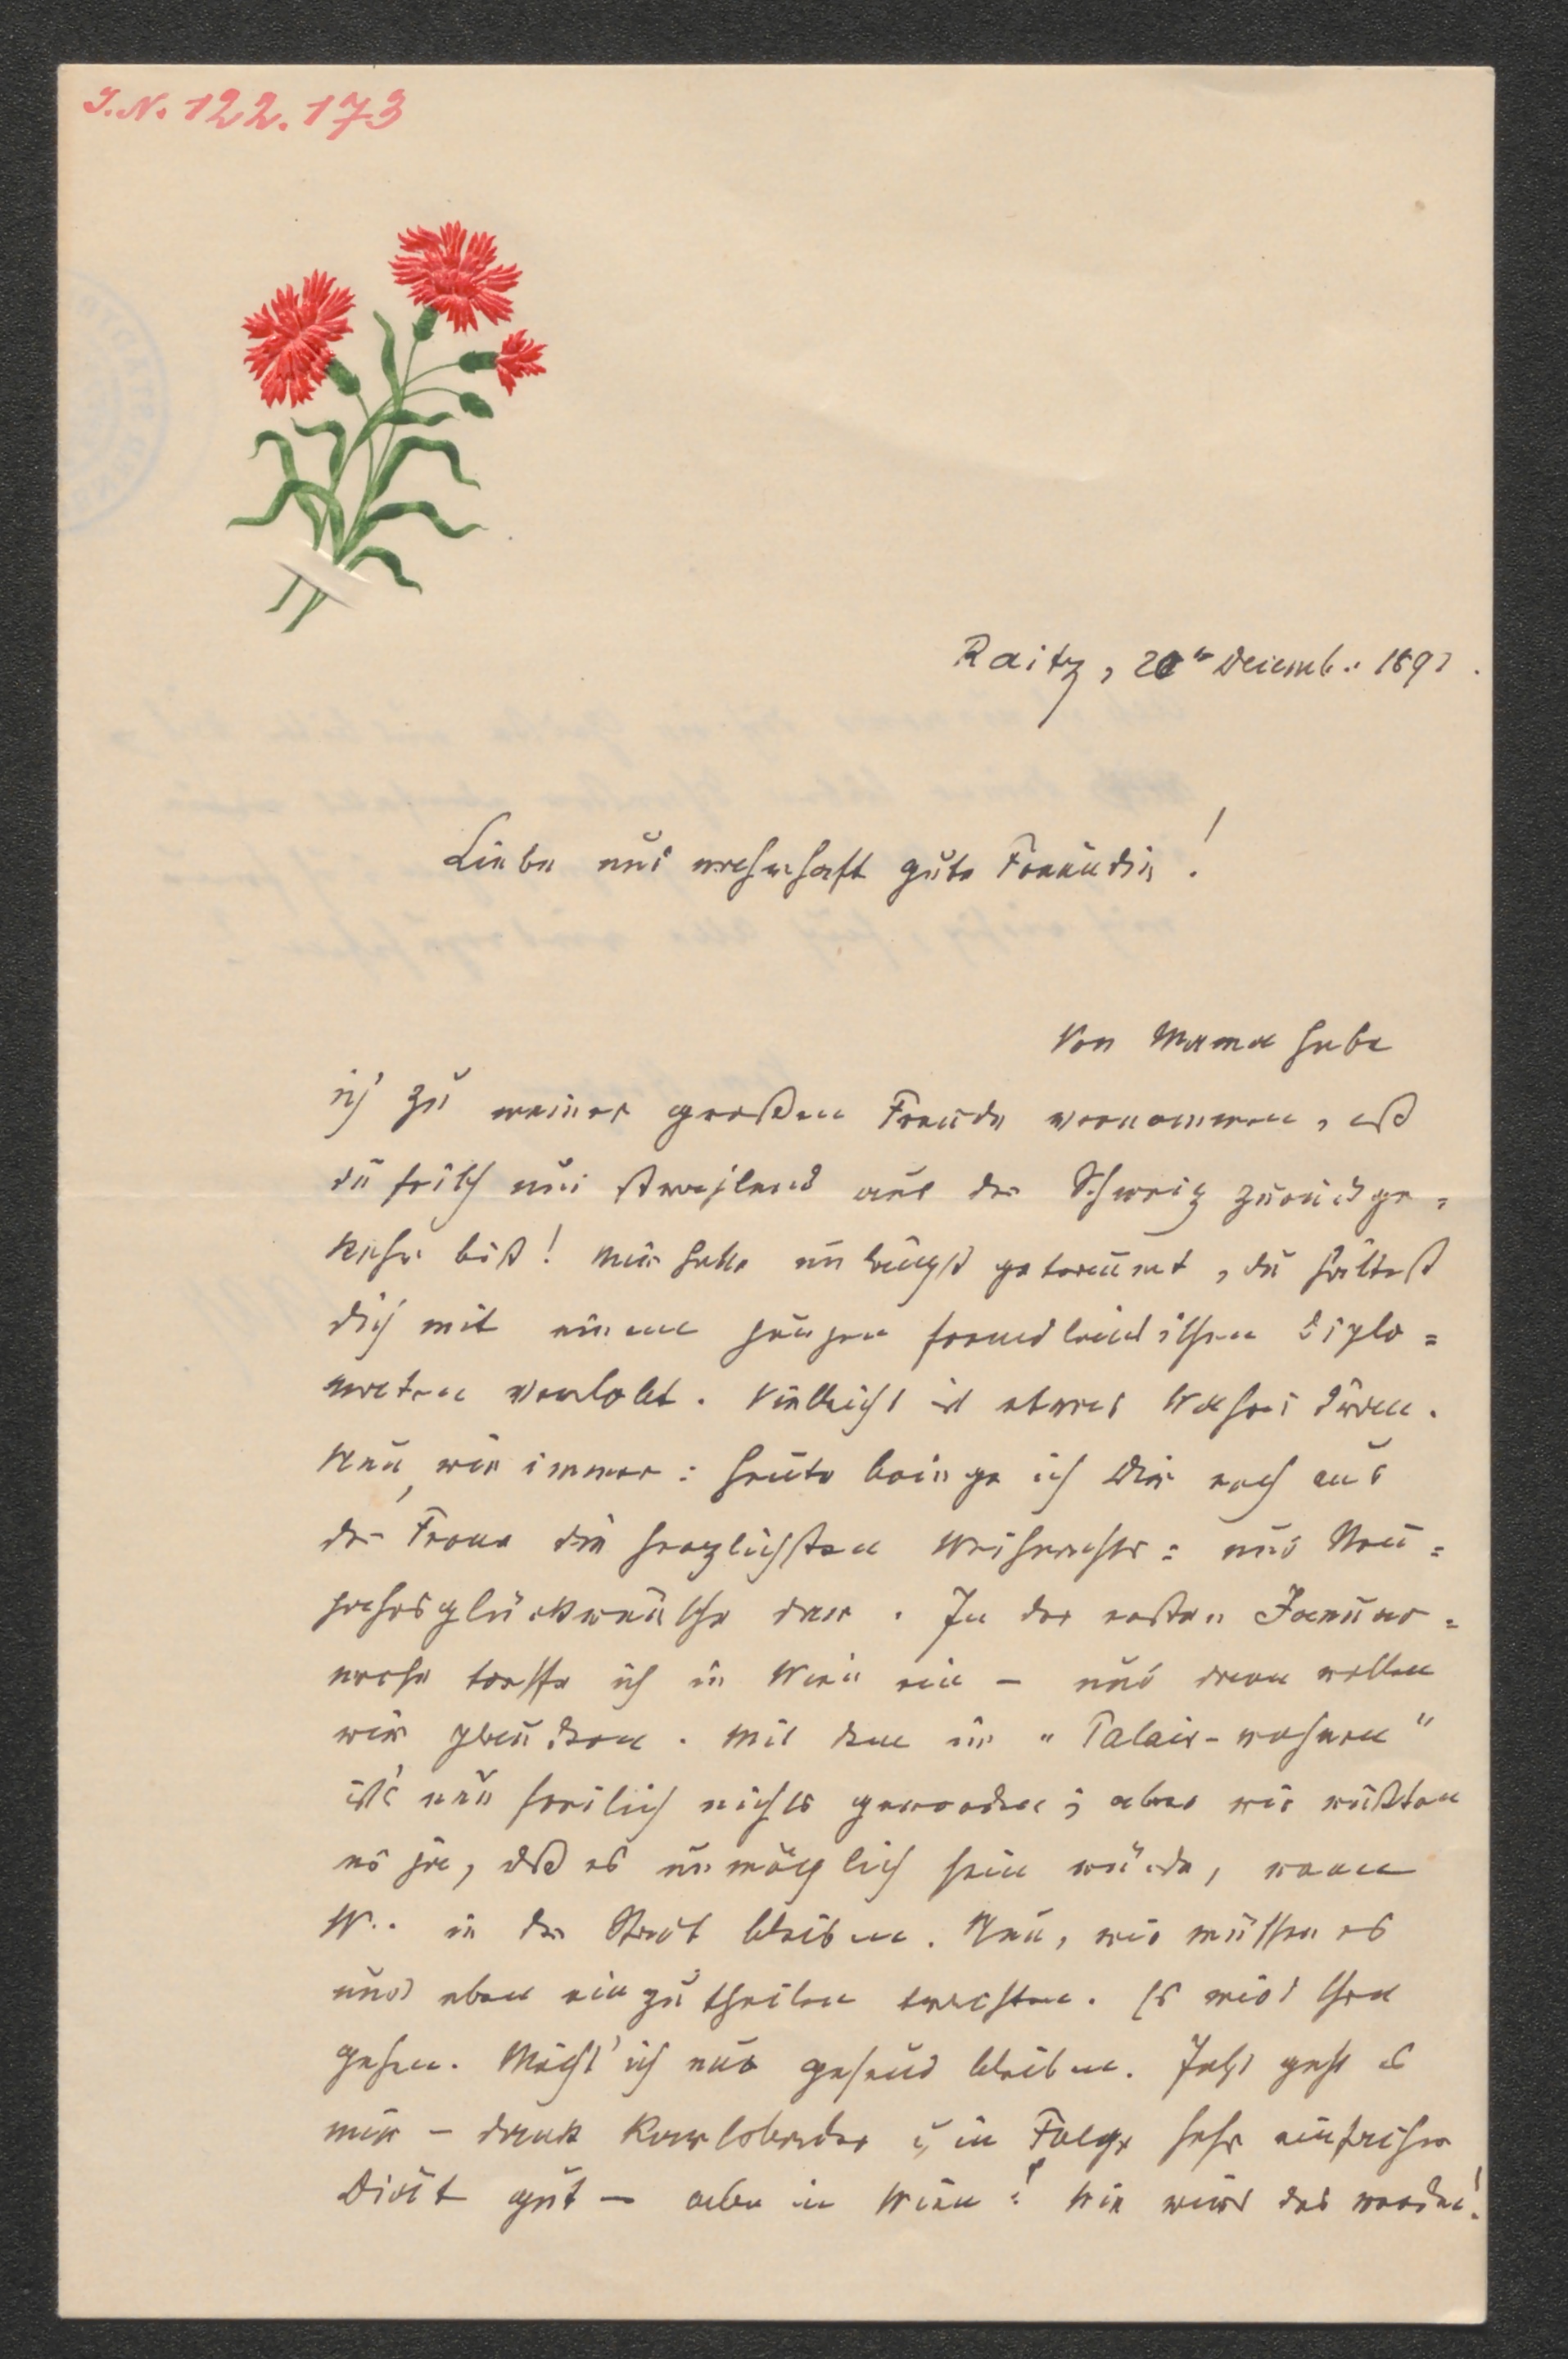 I.N. 122.173
Raitz, 20t Decemb. 1891.
Liebe und wahrhaft gute Freundin!
Von Mama habe
ich zu meiner großen Freude vernommen, daß
du frisch und strahlend aus der Schweiz zurückge=
kehrt bist! Mir hatte unlängst geträumt, du hättest
dich mit einem jungen fremdländischen Diplo=
maten verlobt. Vielleicht ist etwas Wahres daran.
Nun, wie immer: heute bringe ich Dir noch aus
der Ferne die herzlichsten Weihnachts= und Neu=
jahrsglückwünsche dar. In der ersten Januar=
woche treffe ich in Wien ein – und dann wollen
wir plaudern. Mit dem im „Palais-wohnen"
ist's nun freilich nichts geworden; aber wir wußten
es ja, daß es unmöglich sein würde, wenn
W.. in der Stadt bleiben. Nun, wir müssen es
uns eben einzutheilen trachten. Es wird schon
gehen. Möcht' ich nur gesund bleiben. Jetzt geht es
mir – dank Karlsbader u. in Folge sehr einfacher
Diät gut – aber in Wien! Wie wird das werden!